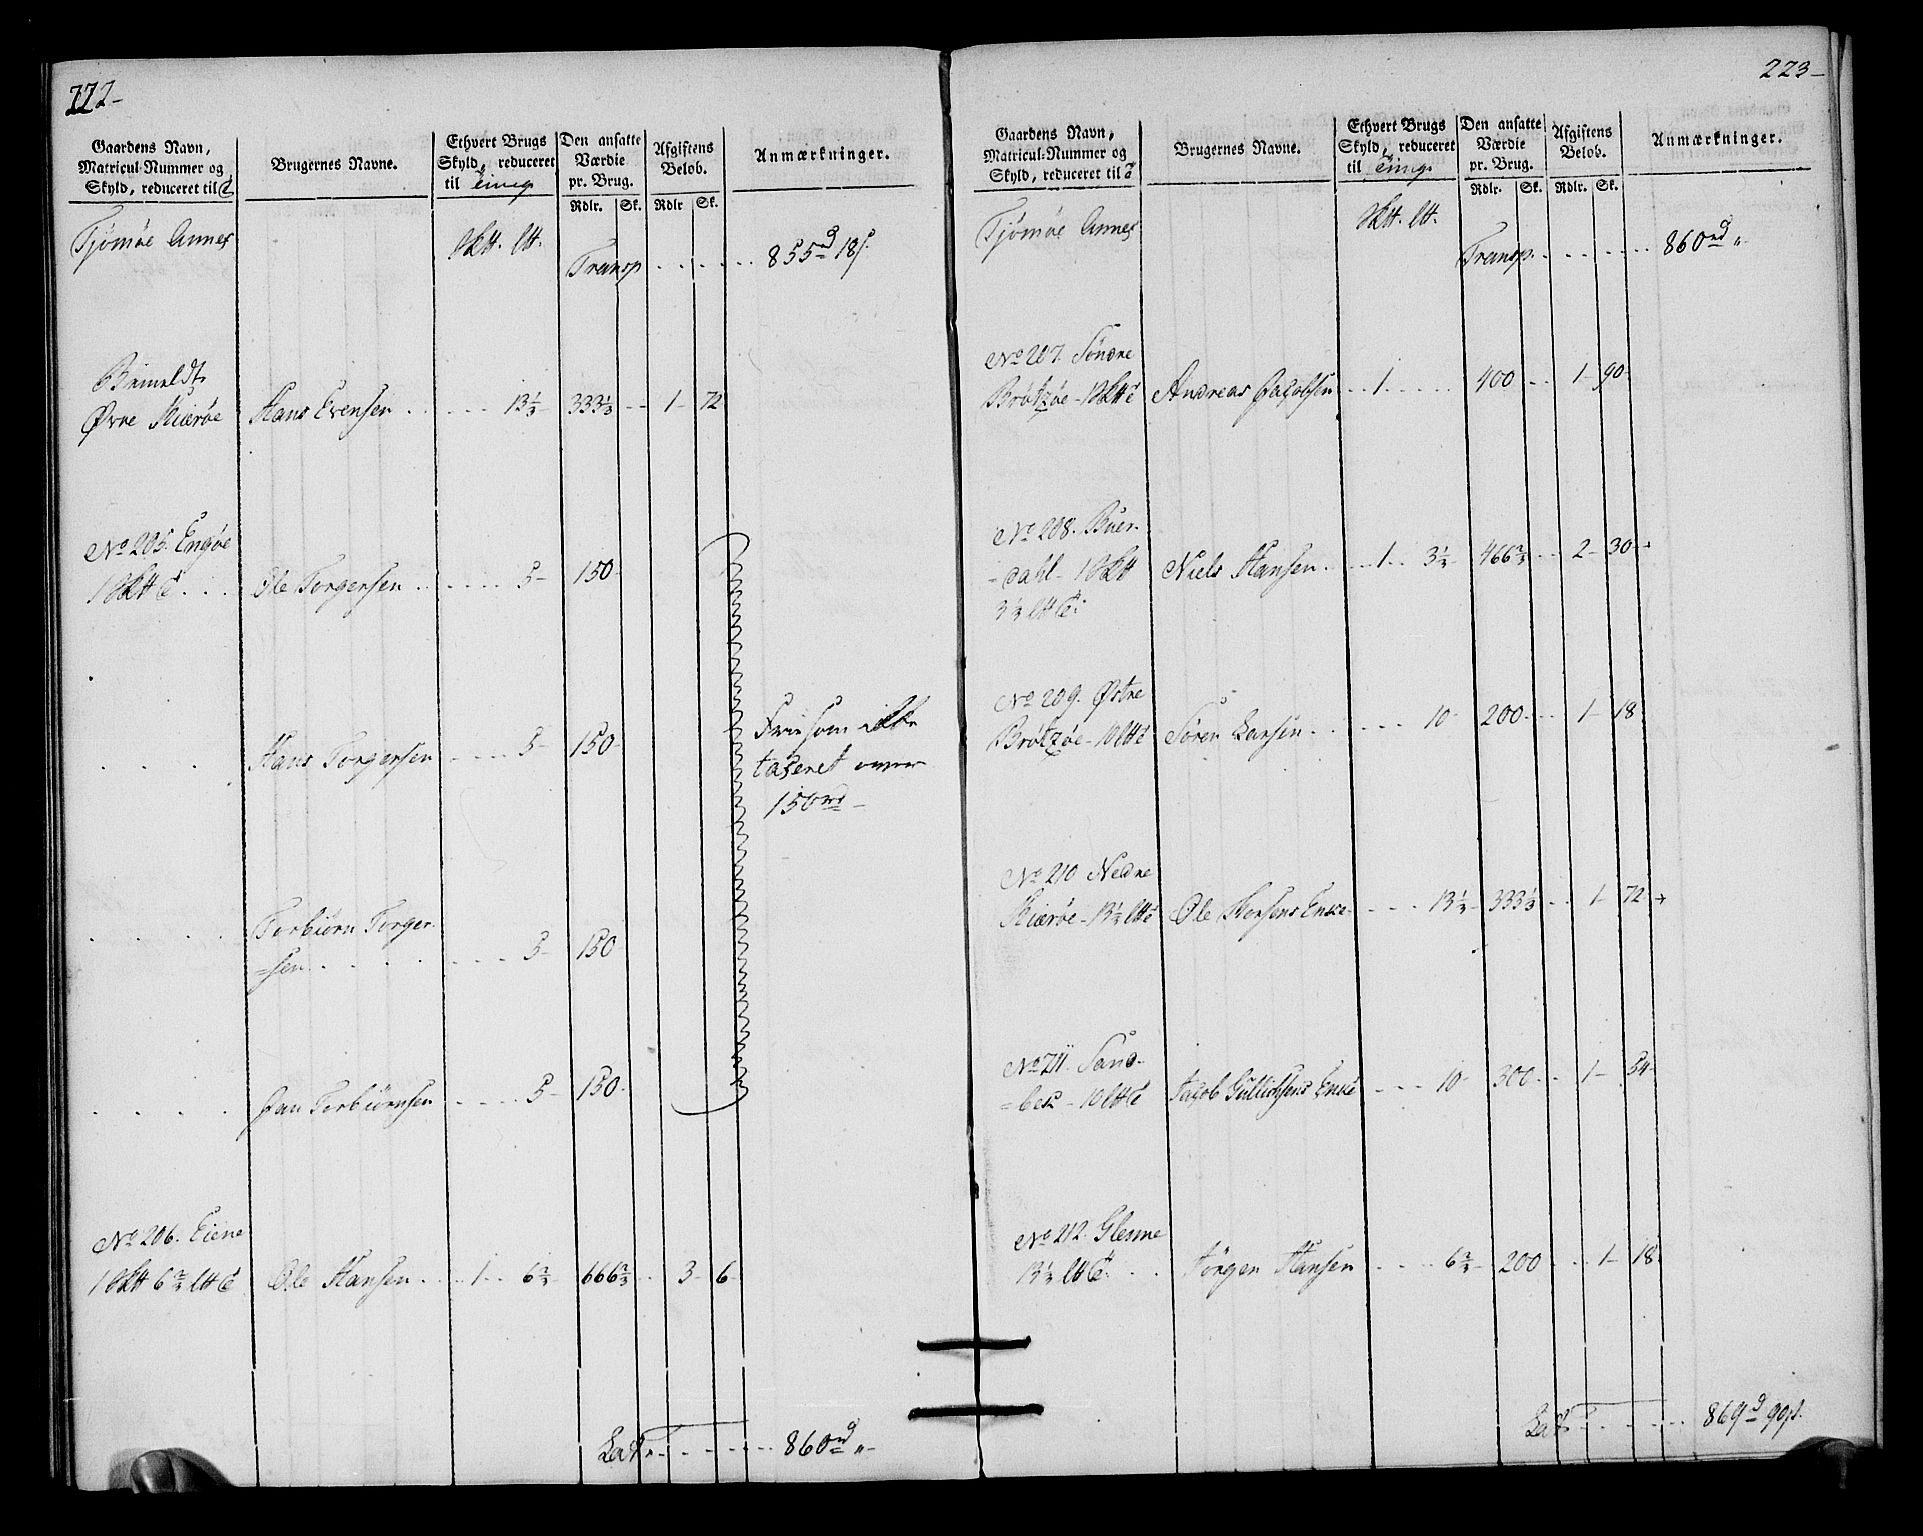 222-
Gaardens Navn, Matricul-Nummer og Skyld, reduceret til
Brugernes Navne.
Ethvert Brugs Skyld, reduceret til Tinng
Den ansatte Værdie pr. Brug.
Rdlr. Sk.
Afgiftens Beløb.
Rdlr Sk.
Anmærkninger.
Tjømøe Annex
Transp . . . . . 855rd 18s.
Bemeldte
Øvre Kiærøe Hans Evensen . . . . . 13⅓ 333⅓ - - 1- 72
No 205. Engøe
Ole Torgersen . . . . . . 5- 150-
Hans Torgersen . . . . 5- 150-
Friesom ikke
taxeret over
150rd -
Torbiørn Torger-
=sen . . . . . . . 5- 150
Jan Torbiørnsen . . . . 5- 150-
No 206. Eiene
Ole Hansen . . . 1 - - 6⅔ 666⅔ - - 3- 6-
Lat. . . . . . . 860rd „-
223-
Gaardens Navn, Matricul-Nummer og Skyld, reduceret til
Brugernes Navne.
Ethvert Brugs Skyld, reduceret til Tinng
Den ansatte Værdie pr. Brug.
Rdlr. Sk.
Afgiftens Beløb.
Rdlr. Sk.
Anmærkninger.
Tjømøe Annex
Transp. . . . . . 860rd „.
No 207. Søndre
Brøtzøe Andreas Jacobsen - - 1 - . . . . 400 - - 1- 90-
No 208. Buer-
-dahl - Niels Hansen . . . 1 - - 3⅓ 466⅔ - - 2- 30-
No 209. Østre
Brøtzøe - Søren Larsen . . . . . . 10- 200- - 1- 18
No 210 Nedre
Kiærøe - Ole Hansens Enke - - - - 13⅓ 333⅓ - - 1- 72-
No 211. Sand-
=bek - Jacob Gullichsens Enke - - - 10- 300- - 1- 54-
No 212. Glesme
Jørgen Hansen . . . . 6⅔ 200 - - 1- 18
Lat. . . . . . . 869rd 90s.